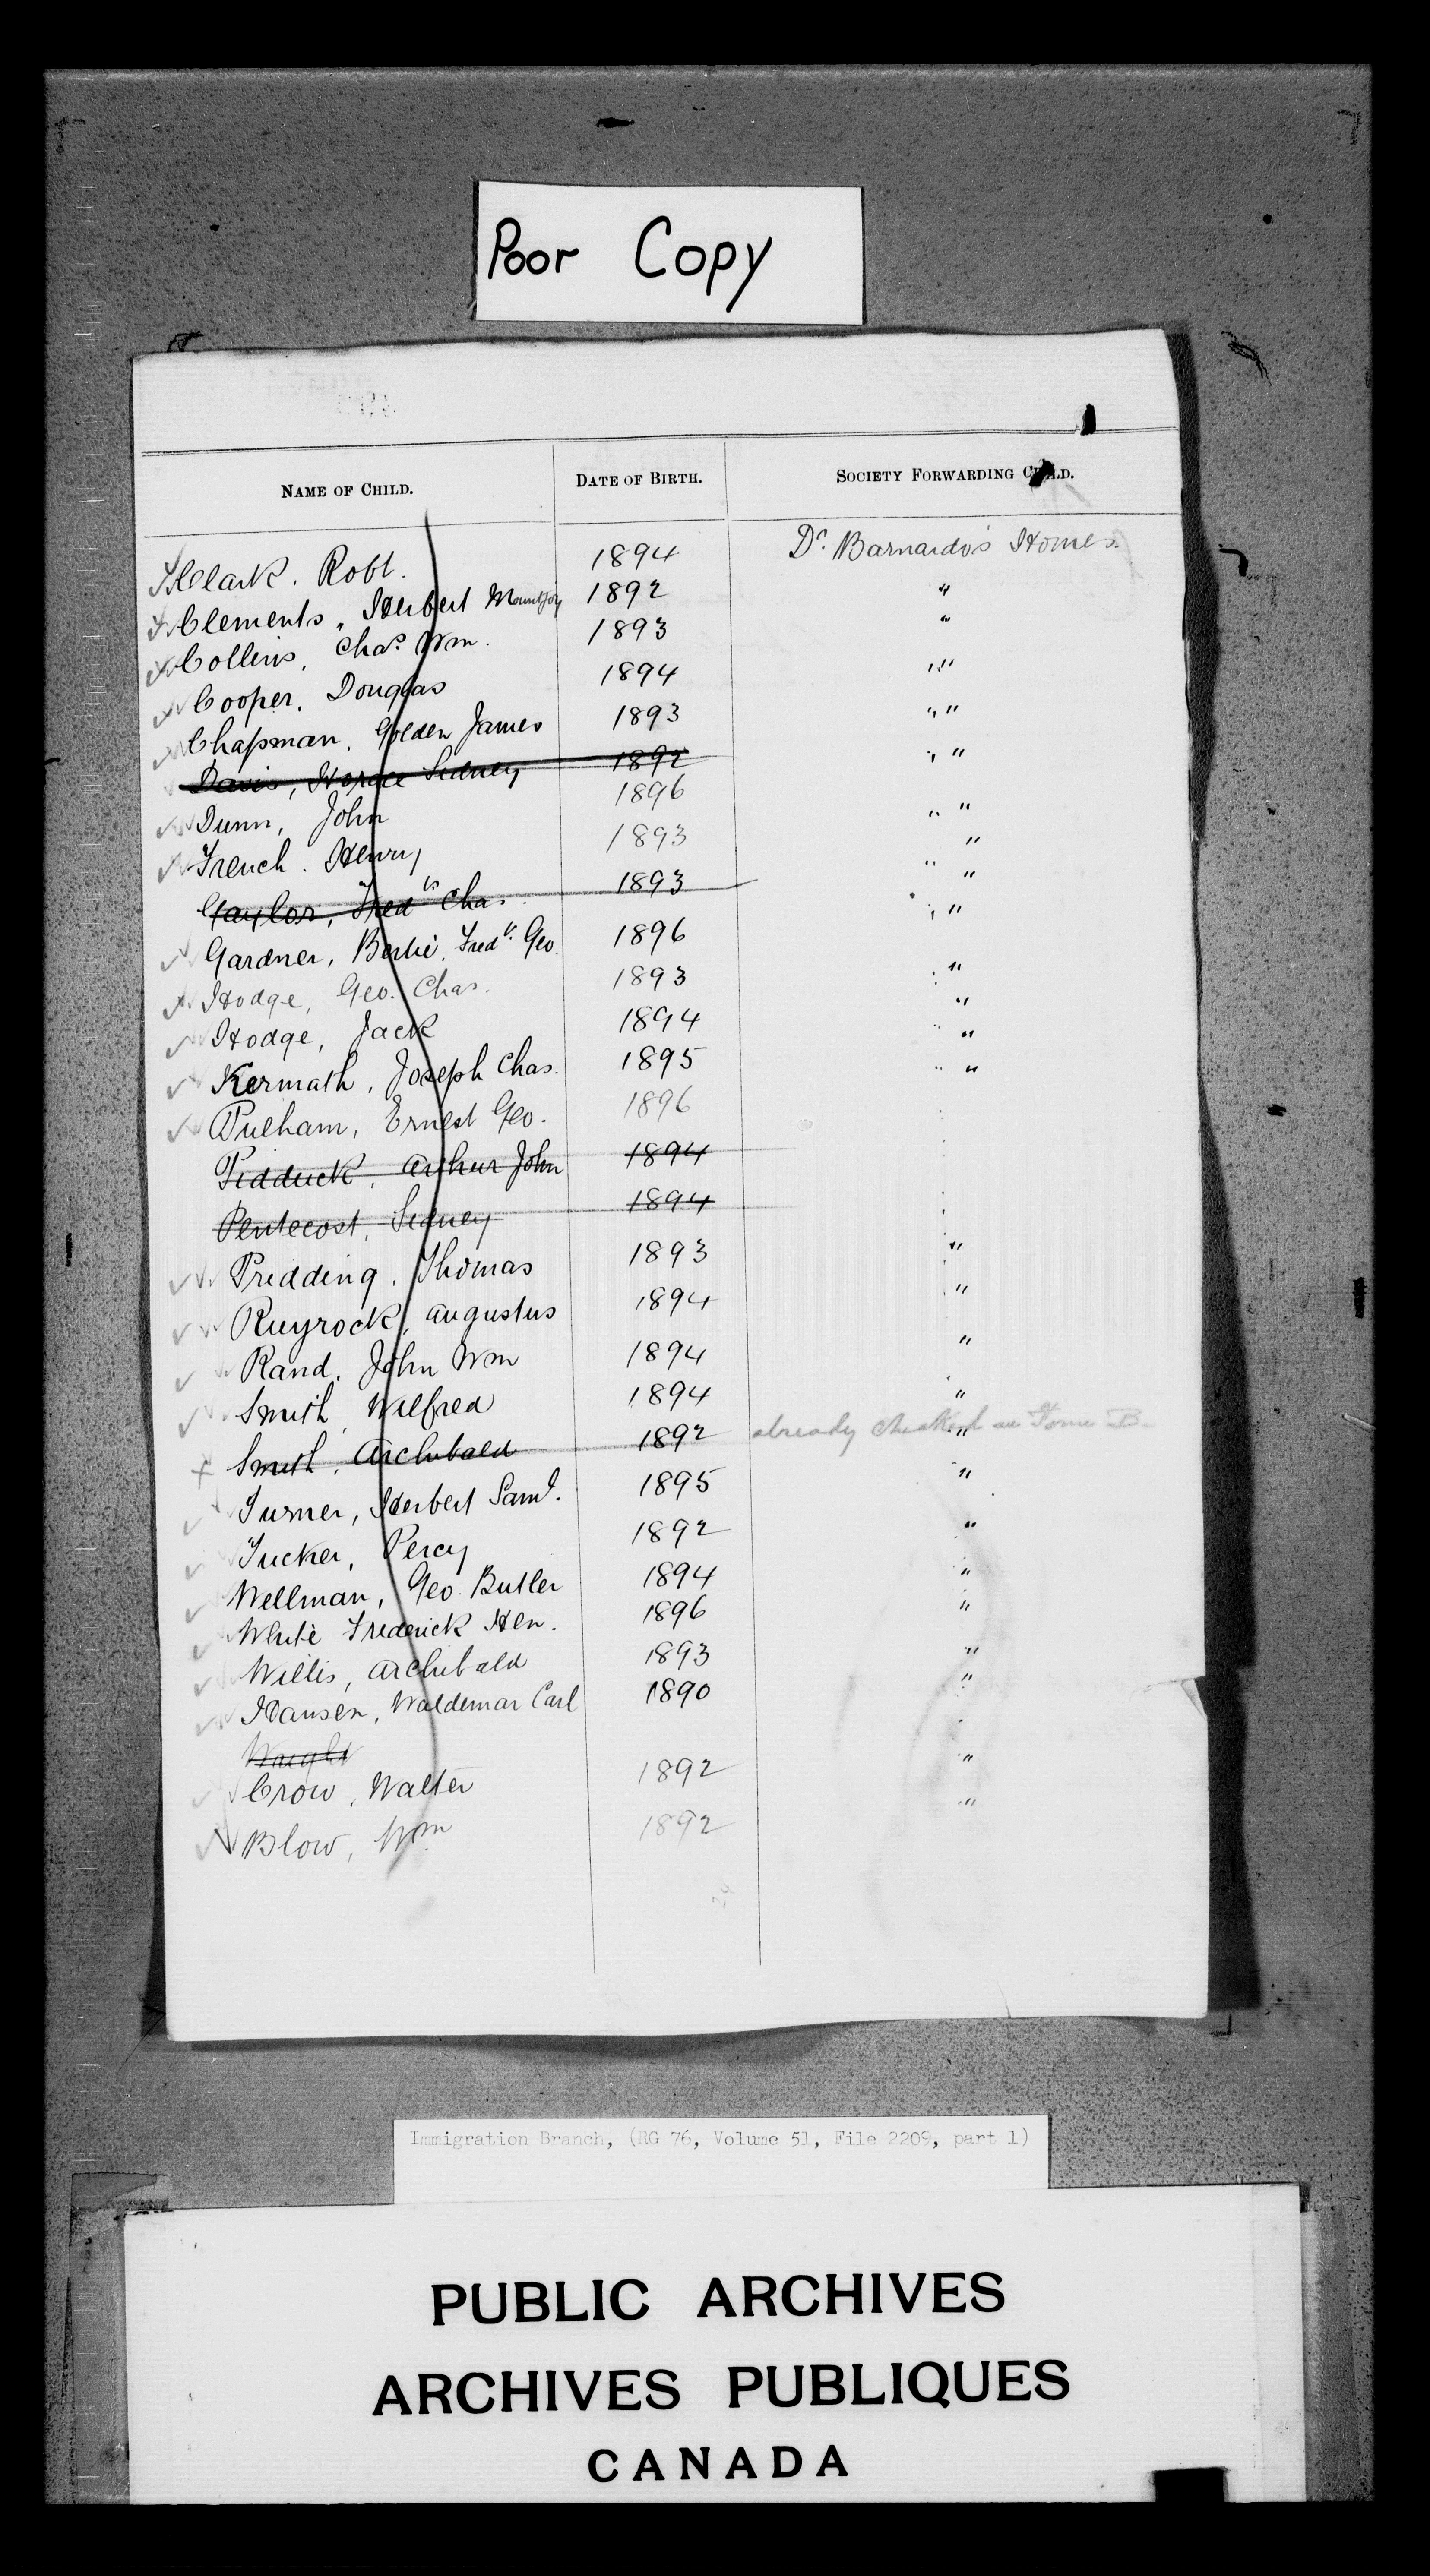 Poor Copy
NAME OF CHILD. DATE OF BIRTH. SOCIETY FORWARDING CHILD.
Clark. Robt. 1894 Dr. Barnardo's Homes.
Clements, Herbert Mountjoy 1892 "
Collins, Chas. Wm. 1893 "
Cooper, Douglas 1894 " "
Chapman, Golden James 1893 " "
Davis, Horace Sidney 1892 " "
Dunn, John 1896 " "
French. Henry 1893 "
Gaylor, Fredk Chas. 1893 " "
Gardner, Bertie, Fredk. Geo. 1896 " "
Hodge, Geo. Chas. 1893 "
Hodge, Jack 1894 "
Kermath, Joseph Chas. 1895 " "
Pulham, Ernest Geo. 1896 " "
Pidduck, Arthur John 1894
Pentecost, Sidney 1894
Pridding, Thomas 1893 "
Ruyrock, Augustus 1894 "
Rand, John Wm 1894 "
Smith, Wilfred 1894 "
Smith, Archibald 1892 already checked on Form B
Turner, Herbert Saml. 1895 "
Tucker, Percy 1892 "
Wellman, Geo. Butler 1894 "
White Frederick Hen. 1896 "
Willis, Archibald 1893 "
Hansen, Waldemar Carl 1890 "
Waight
Crow, Walter 1892 "
Blow, Wm 1892 "
24
Immigration Branch, (RG 76, Volume 51, File 2209, part 1)
PUBLIC ARCHIVES
ARCHIVES PUBLIQUES
CANADA